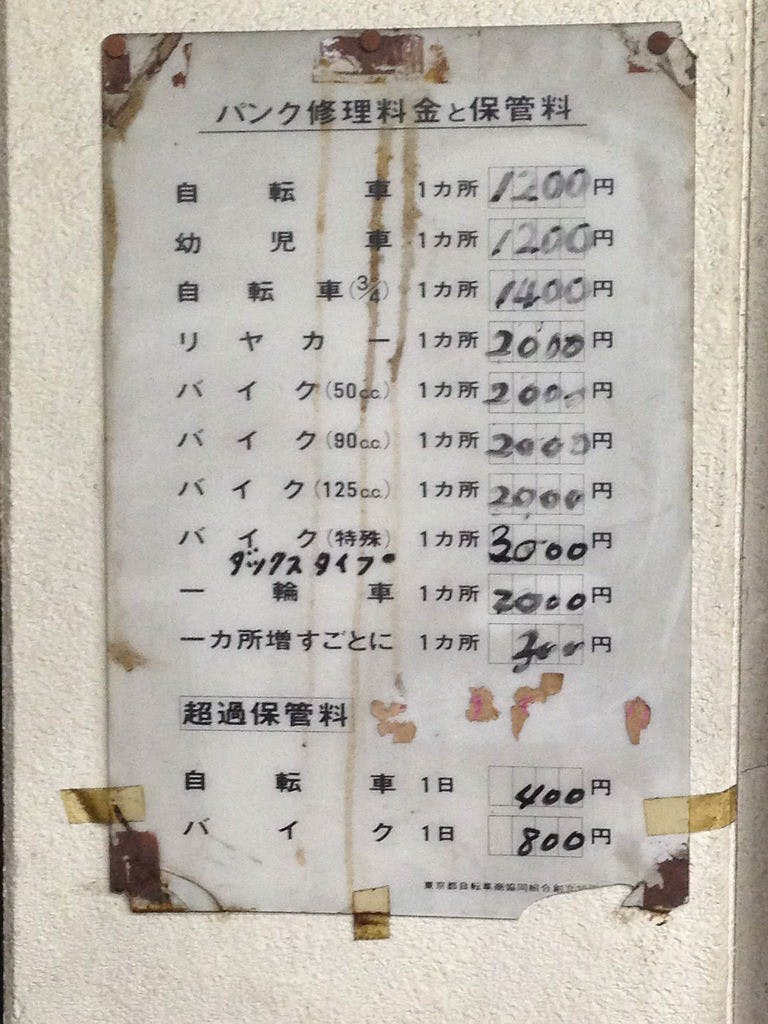 パンク修理料金と保管料
自転車 1カ所 1200円
幼児車 1カ所 1200円
自転車(3/4) 1カ所 1400円
リヤカー 1カ所 2000円
バイク(50c.c.) 1カ所 2000円
バイク(90c.c.) 1カ所 2000円
バイク(125c.c.) 1カ所 2000円
バイク(特殊) 1カ所 3000円
ダックスタイプ
一輪車 1カ所 2000円
一カ所増すごとに 1カ所 円
超過保管料
自転車 1日 400円
バイク 1日 800円
東京都自転車商協同組合創立